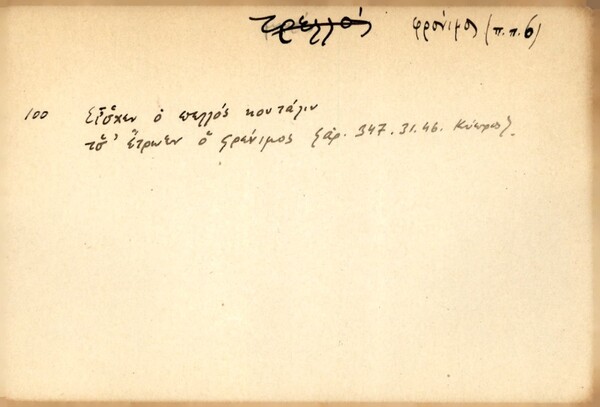 τρελλός φρόνιμος (π.π.6)
100 εἶσχεν ὁ πελλός κουτάλιν
τσ' ἔτρωεν ὁ φρένιμος ξἀρ. 347. 31. 46. Κύπρος}.